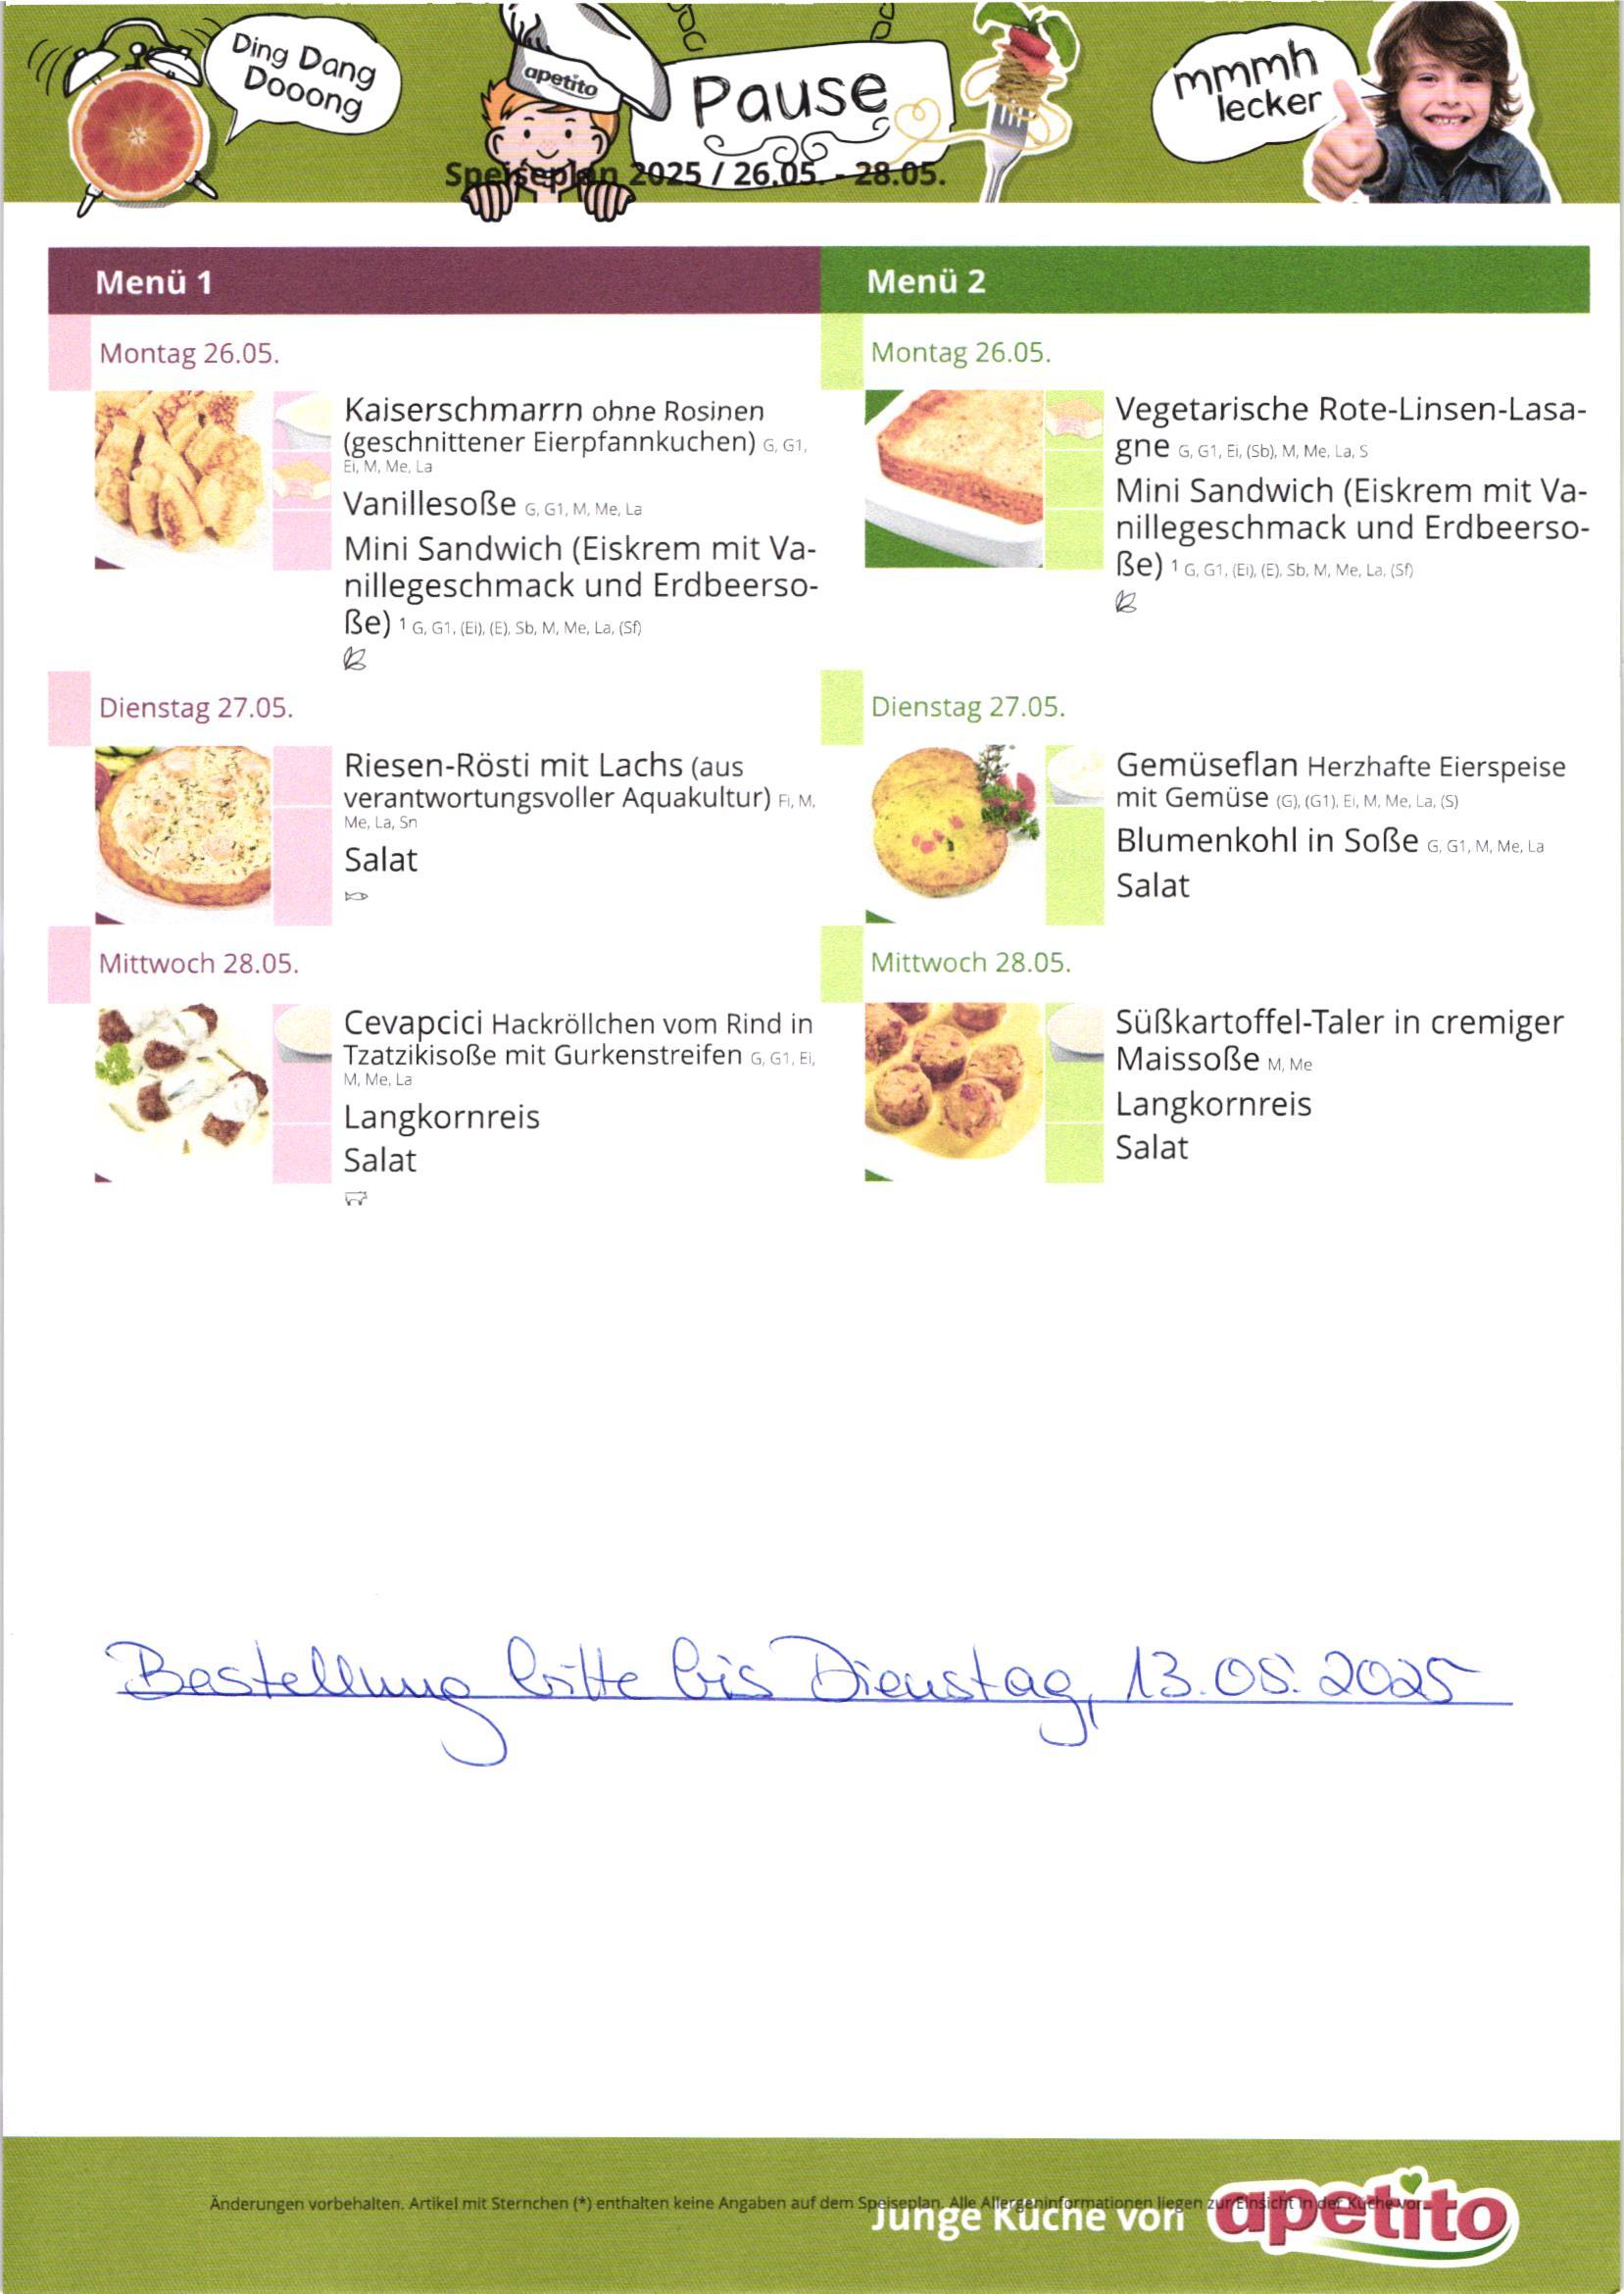 Ding Dang
Dooong
apetito
Pause
mmmh
lecker
Speiseplan 2025 / 26.05. - 28.05.
Menü 1
Montag 26.05.
Kaiserschmarrn ohne Rosinen
(geschnittener Eierpfannkuchen) G, G1,
Ei, M, Me, La
Vanillesoße G, G1, M, Me, La
Mini Sandwich (Eiskrem mit Va-
nillegeschmack und Erdbeerso-
ße) ¹ G, G1, (Ei), (E), Sb, M, Me, La, (Sf)
Dienstag 27.05.
Riesen-Rösti mit Lachs (aus
verantwortungsvoller Aquakultur) Fi, M,
Me, La, Sn
Salat
Mittwoch 28.05.
Cevapcici Hackröllchen vom Rind in
Tzatzikisoße mit Gurkenstreifen G, G1, Ei,
M, Me, La
Langkornreis
Salat
Menü 2
Montag 26.05.
Vegetarische Rote-Linsen-Lasa-
gne G, G1, Ei, (Sb), M, Me, La, S
Mini Sandwich (Eiskrem mit Va-
nillegeschmack und Erdbeerso-
ße) ¹ G, G1, (Ei), (E), Sb, M, Me, La, (Sf)
Dienstag 27.05.
Gemüseflan Herzhafte Eierspeise
mit Gemüse (G), (G1), Ei, M, Me, La, (S)
Blumenkohl in Soße G, G1, M, Me, La
Salat
Mittwoch 28.05.
Süßkartoffel-Taler in cremiger
Maissoße M, Me
Langkornreis
Salat
Bestellung bitte bis Dienstag, 13.05.2025
Änderungen vorbehalten. Artikel mit Sternchen (*) enthalten keine Angaben auf dem Speiseplan. Alle Allergeninformationen liegen zur Einsicht in der Küche vor.
Junge Küche von apetito